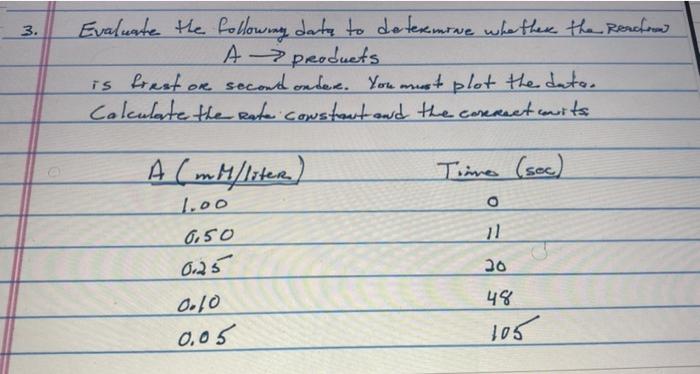 3. Evaluate the following data to determine whether the Reaction
A → products
is first or second order. You must plot the data.
Calculate the Rate constant and the correct units
A (mM/liter) Time (sec)
1.00 0
0.50 11
0.25 20
0.10 48
0.05 105